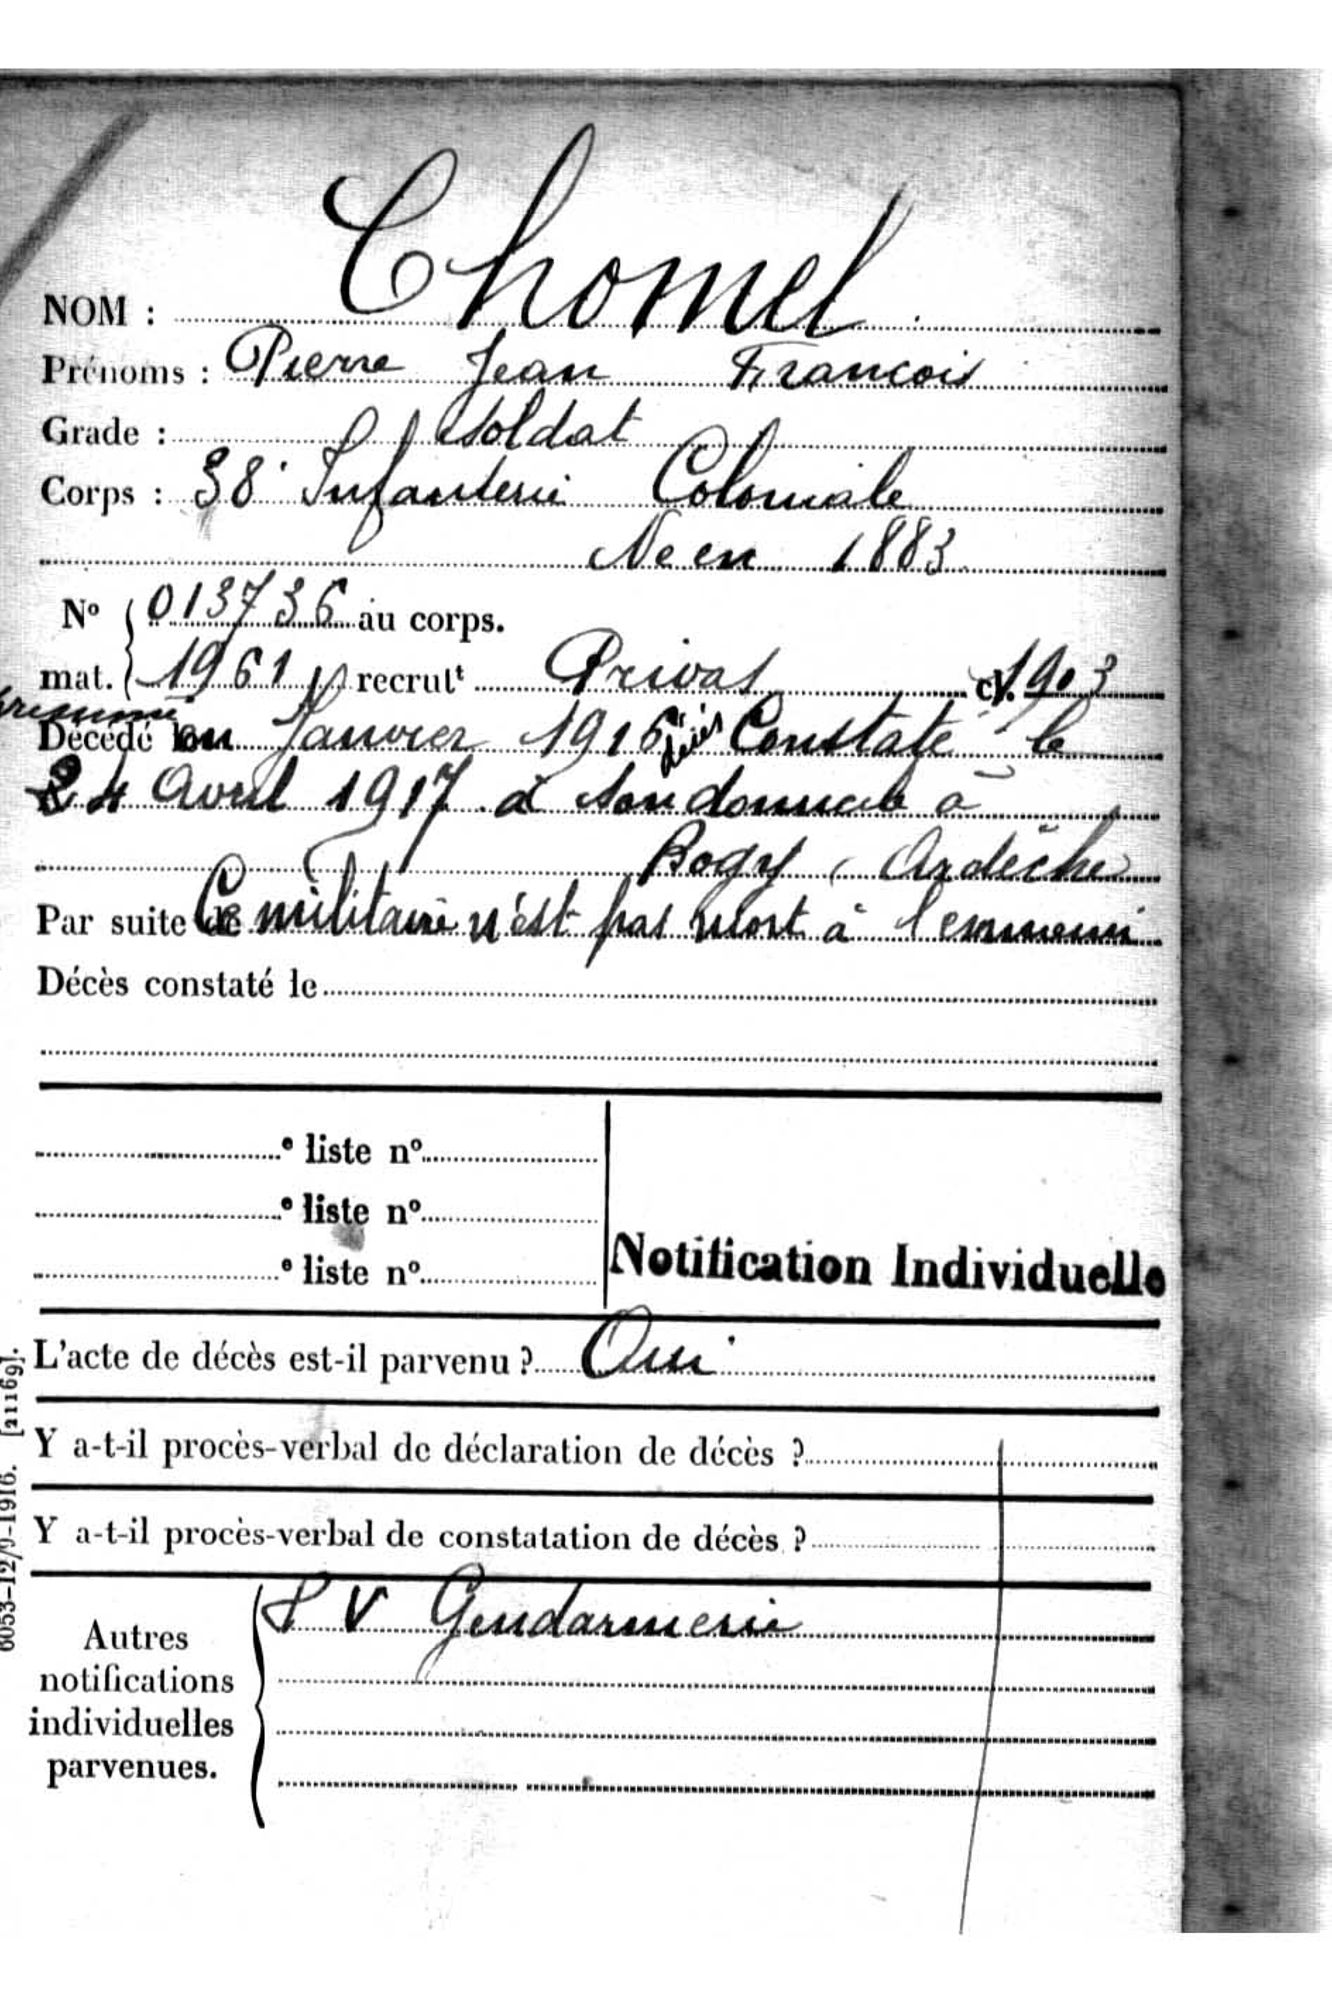 Chomel
NOM :
Prénoms : Pierre Jean Francois
Grade : Soldat
Corps : 38e Infanterie Coloniale
Né en 1883
Nº 013736 au corps.
mat. 1961 recrult Privas cl. 1903
Décédé en Janvier 1916 décès Constaté le
24 Avril 1917 à son domicile à
Bogy, Ardèche
Par suite de Ce militaire n'est pas mort à l'ennemi
Décès constaté le
e liste nº
e liste nº
e liste nº
Notification Individuelle
L'acte de décès est-il parvenu ? Oui
Y a-t-il procès-verbal de déclaration de décès ?
Y a-t-il procès-verbal de constatation de décès ?
Autres
notifications
individuelles
parvenues.
P V Gendarmerie
6053-12/9-1916. [21169].